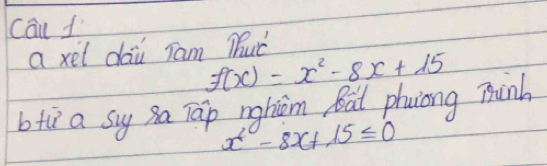 Câu 1:
a xét dấu Tam Thức
f(x) = x² - 8x + 15
b từ a suy ra Tập nghiệm Bất phương Trình
x² - 8x + 15 ≤ 0